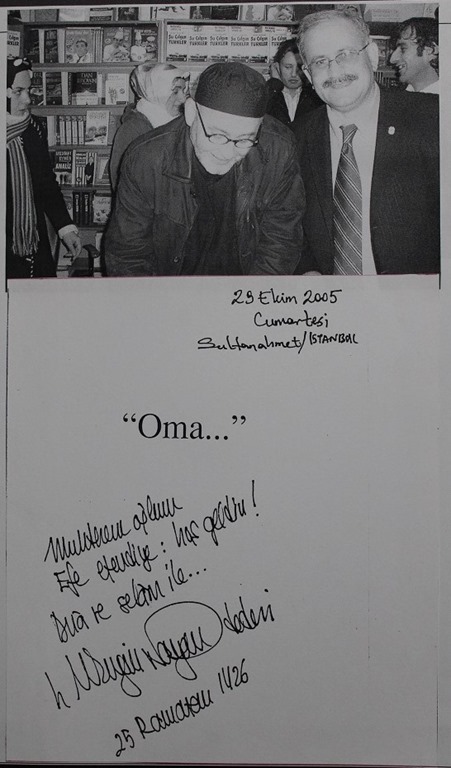 29 Ekim 2005
Cumartesi
Sultanahmet/İSTANBUL
“Oma...”
Muhterem oğlum
Efe efendiye: hoş geldin!
Dua ve selâm ile...
dedesi
25 Ramazan 1426